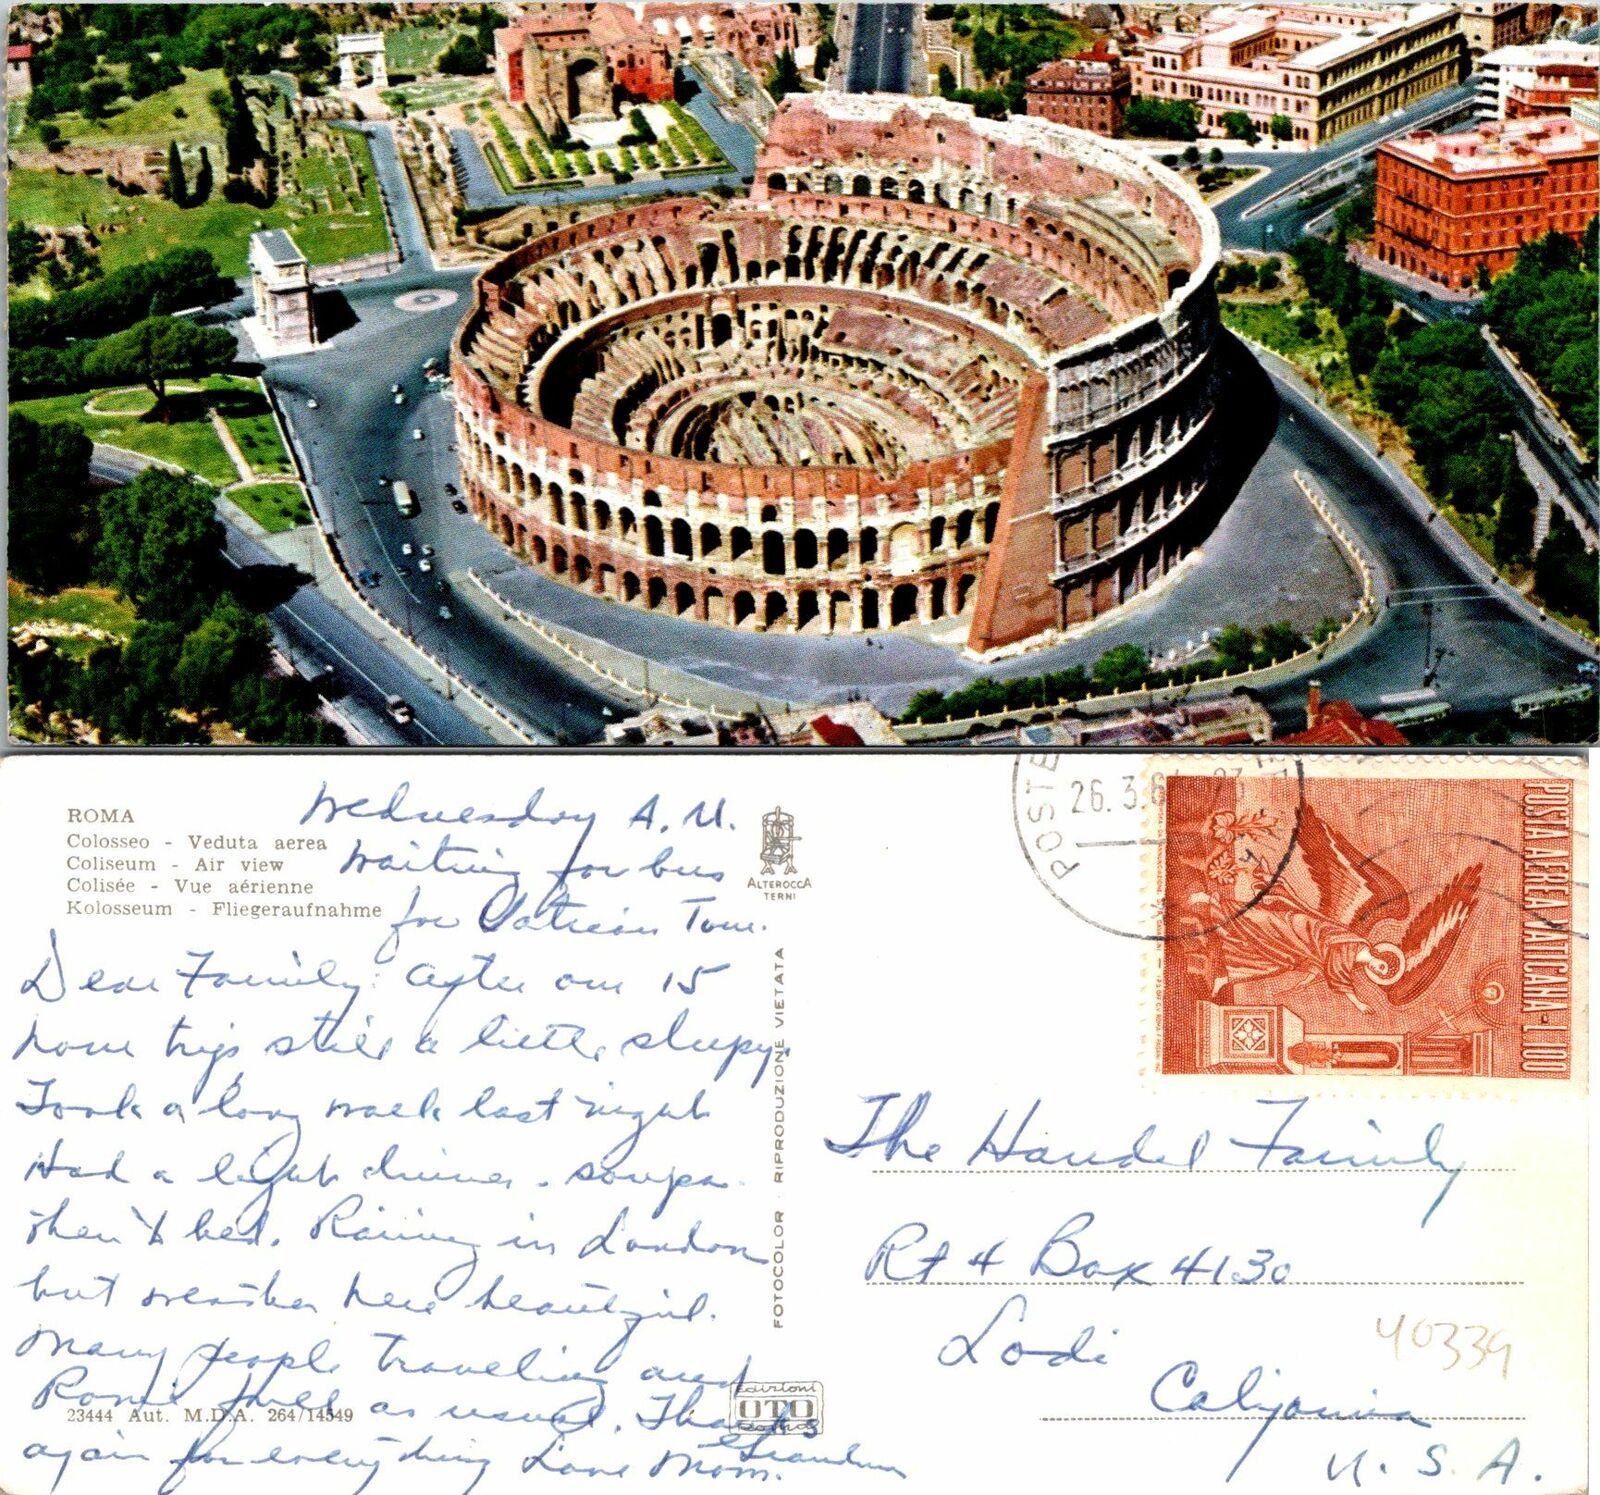 ROMA
Colosseo - Veduta aerea
Coliseum - Air view
Colisée - Vue aérienne
Kolosseum - Fliegeraufnahme
Wednesday A.M.
Waiting for bus
for Vatican Tour.
Dear Family: After our 15
hour trip still a little sleepy.
Took a long walk last night
Had a light dinner - soup
then to bed. Raining in London
but weather here beautiful.
Many people traveling and
Rome full as usual. Thanks
again for everything Love Mom.
Grandma
23444 Aut. M.D.A. 264/14549
ALTEROCCA
TERNI
FOTOCOLOR - RIPRODUZIONE VIETATA
Edizioni
OTO
Roma
POSTE
26.3.6
POSTA AEREA VATICANA - L.100
The Handel Family
Rt 4 Box 4130
Lodi
California
U.S.A.
40339